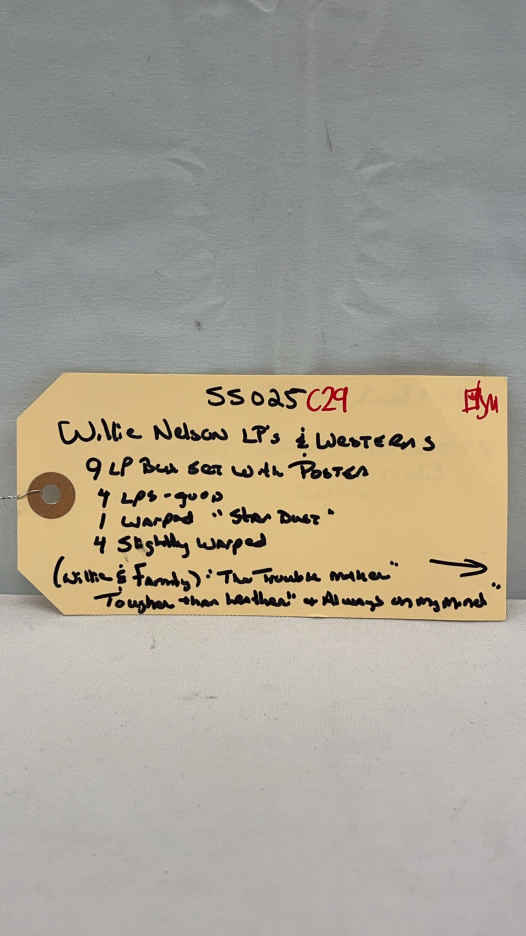 SS025 C29
Willie Nelson LPs & Westerns
9 LP Box Set with Poster
4 LPs - good
1 Warped "Star Dust"
4 Slightly Warped
(Willie & Family): "The Trouble Maker"
"Tougher than Leather" + Always on my mind"